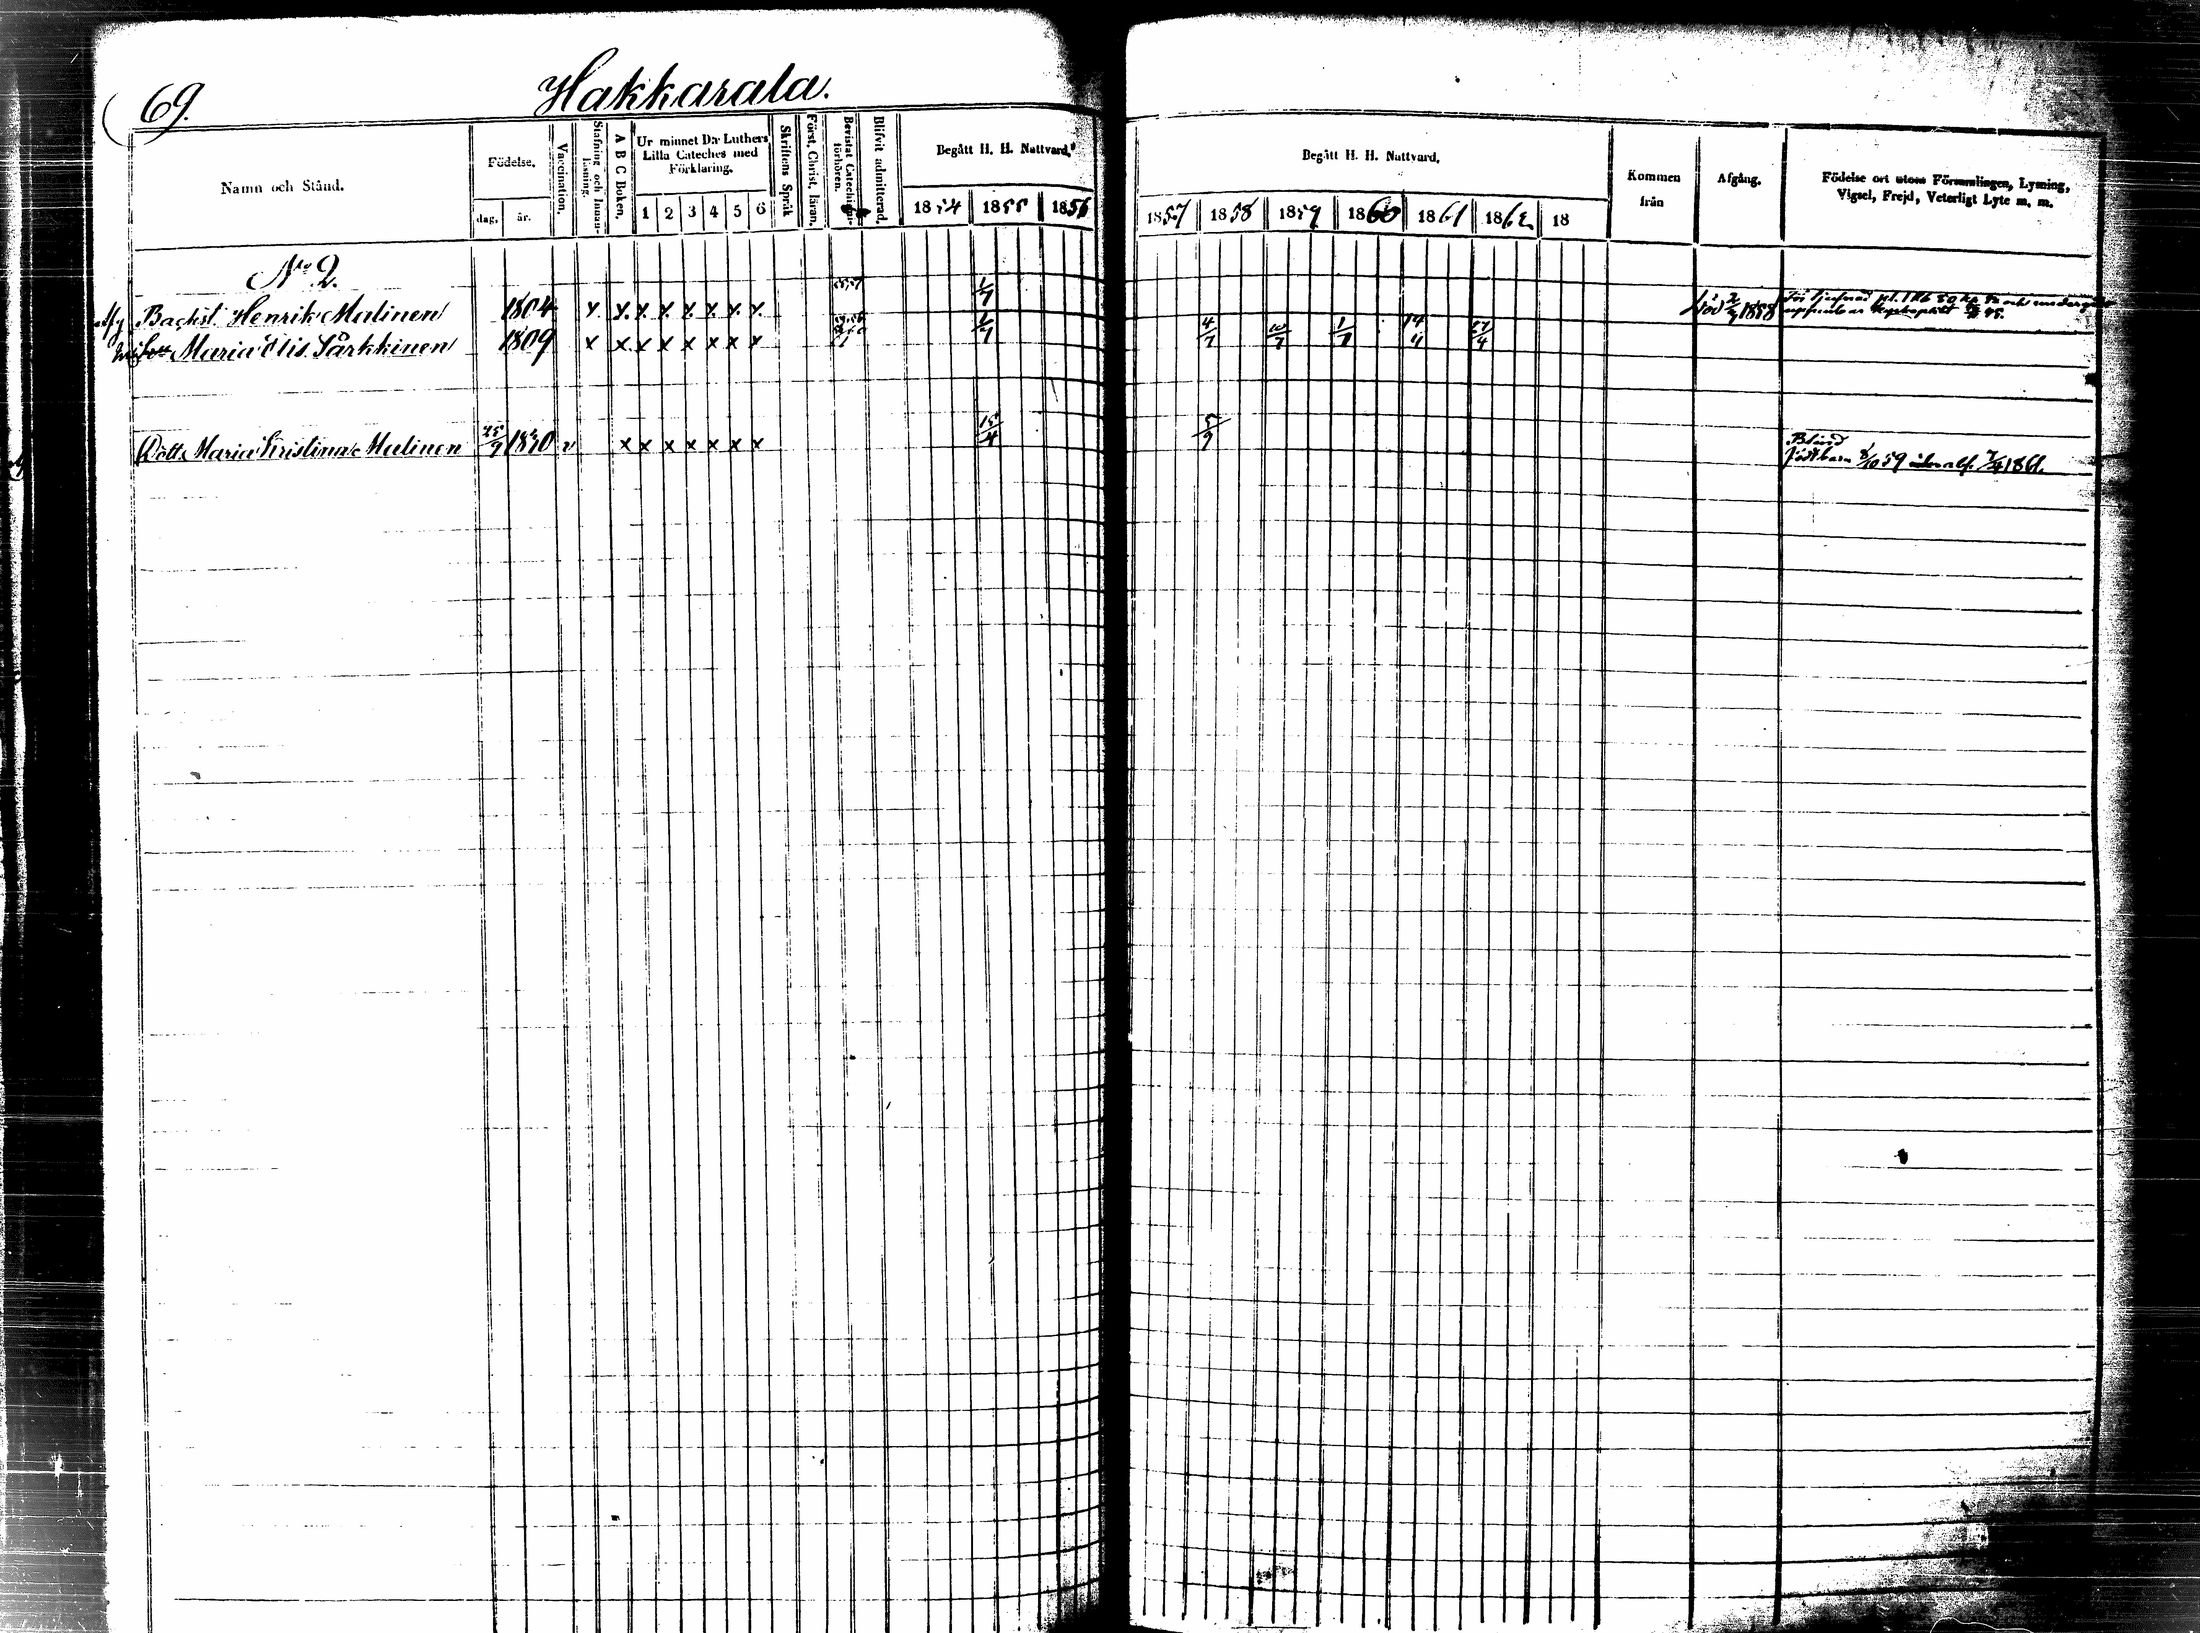 69.
Hakkarala.
Namn och Stånd.
Födelse.
dag.
år.
Vaccination.
Stafning och Innan-
läsning.
A B C Boken.
Ur minnet D:r Luthers
Lilla Cateches med
Förklaring.
1 2 3 4 5 6
Skriftens Språk
Först. Christ. läran.
Bevistat Catechismi-
förhören.
Blifvit admitterad.
Begått H. H. Nattvard.
1854 1855 1856
Begått H. H. Nattvard.
1857 1858 1859 1860 1861 1862 18
Kommen
från
Afgång.
Födelse ort utom Församlingen, Lysning,
Vigsel, Frejd, Veterligt Lyte m. m.
No 2.
Backst. Henrik Malinen 1804 x x x x x x x x 1/7 död 2/7 1858
Maria Olis. Särkkinen 1809 x x x x x x x x 1/7 4/7 10/7 1/7 14 4 27/4
Dott. Maria Kristina Malinen 25/9 1830 v x x x x x x x 15/4 5/9 Blind
född barn 8/10 59 7/4 1861.